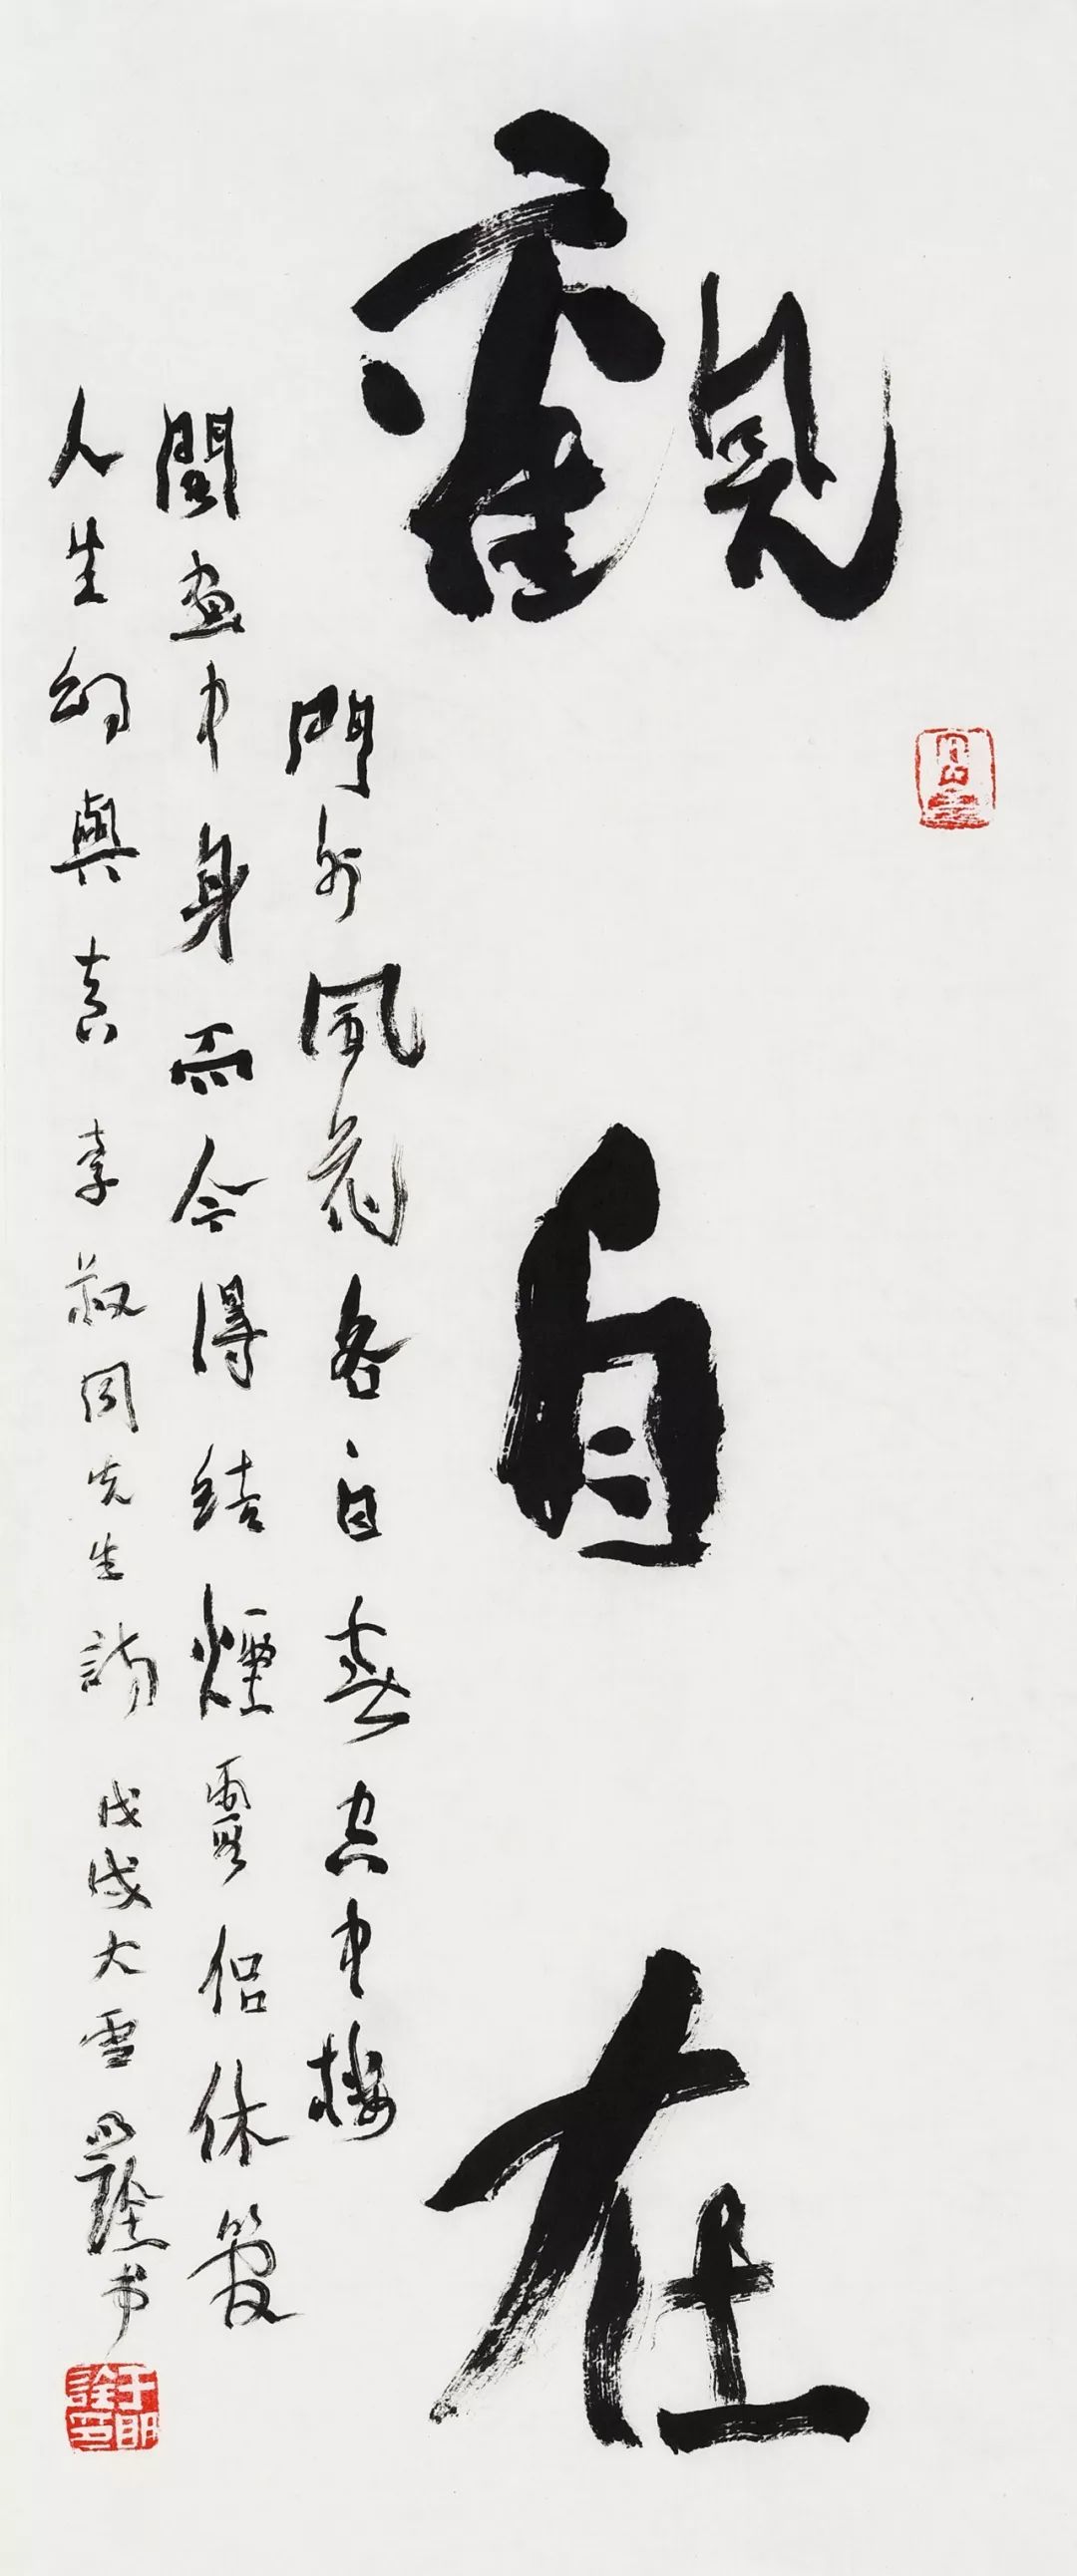 觀自在
門外風花各自春空中樓
閣畫中身而今得結煙霞侶休管
人生幻與真 李叔同先生詩 戊戌大雪 明詮书
于明詮印